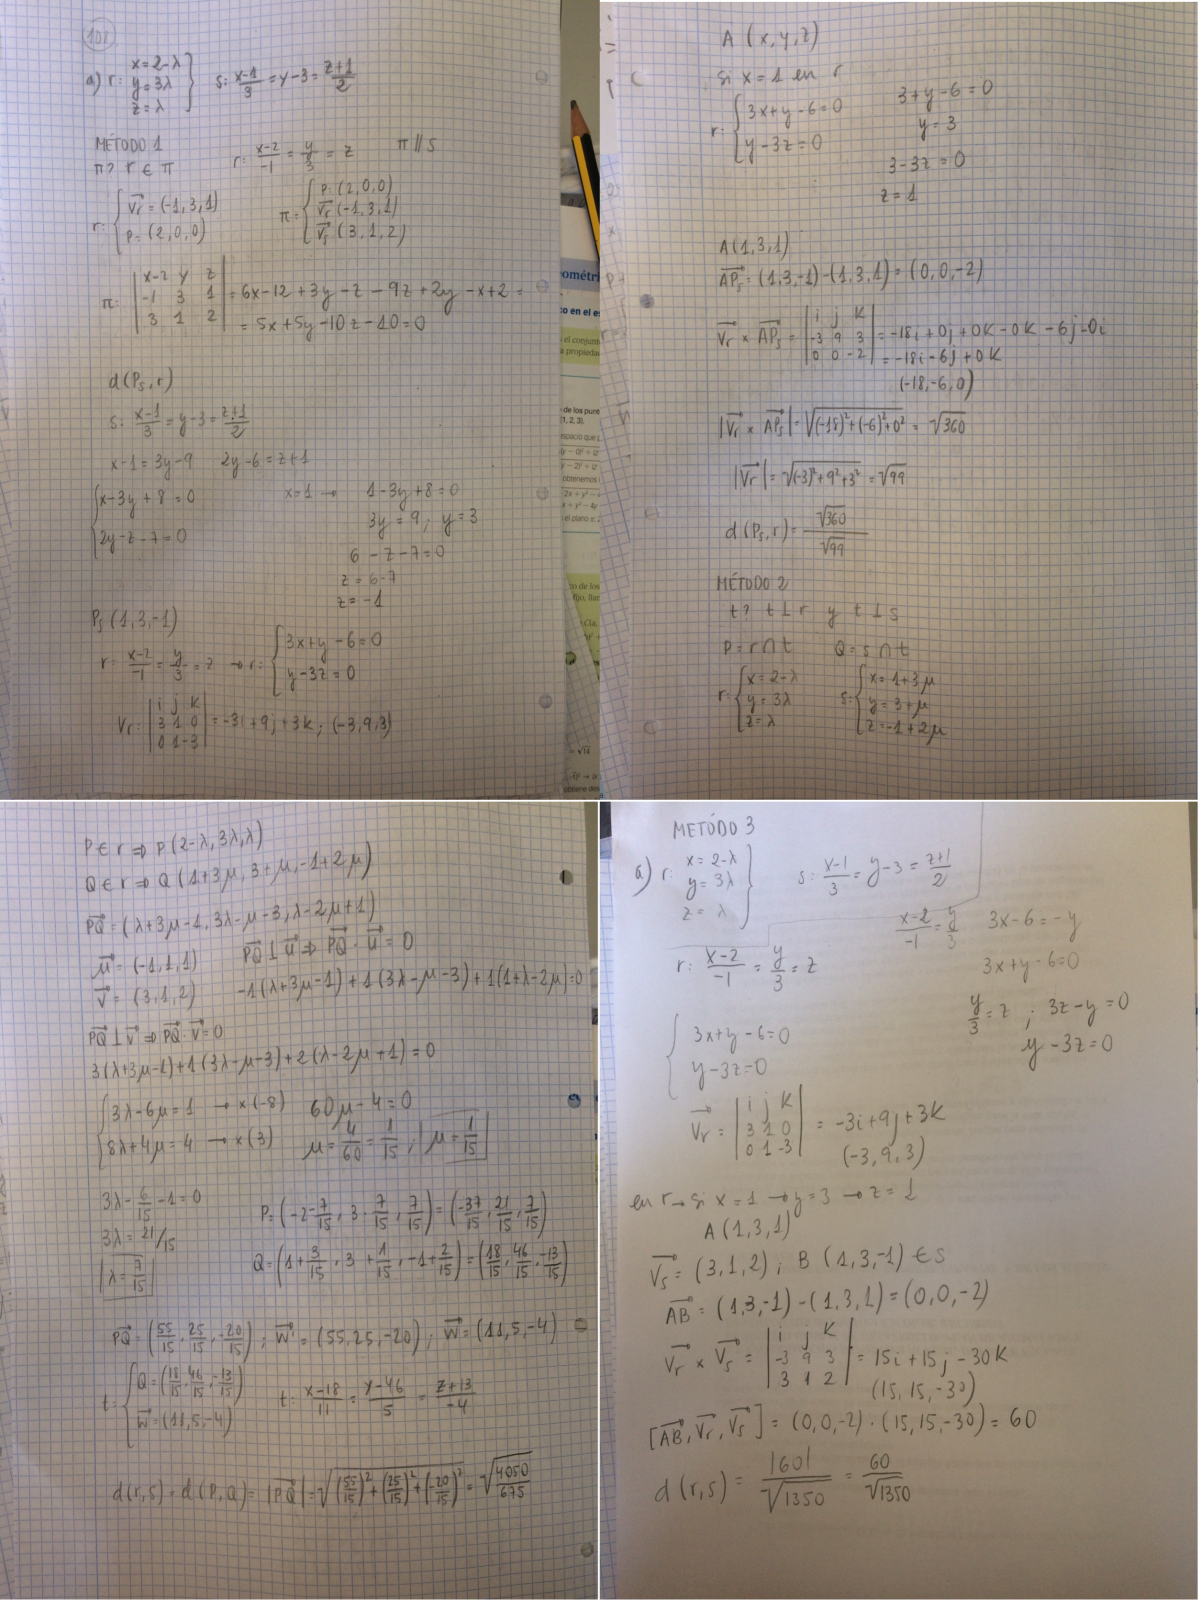 108
a) r: x=2-λ
y=3λ
z=λ
s: x-1/3 = y-3 = z+1/2
MÉTODO 1
π? r ∈ π
r: x-2/-1 = y/3 = z
π // s
r: Vr = (-1,3,1)
P= (2,0,0)
π= P: (2,0,0)
Vr (-1,3,1)
Vs (3,1,2)
π: | x-2 y z |
| -1 3 1 | = 6x-12+3y-z-9z+2y-x+2=
| 3 1 2 | = 5x+5y-10z-10=0
d(Ps,r)
s: x-1/3 = y-3 = z+1/2
x-1=3y-9 2y-6=z+1
x-3y+8=0
2y-z-7=0
x=1 → 1-3y+8=0
3y=9; y=3
6-z-7=0
z=6-7
z=-1
Ps (1,3,-1)
r: x-2/-1 = y/3 = z → r: 3x+y-6=0
y-3z=0
Vr= | i j k |
| 3 1 0 | = -3i+9j+3k; (-3,9,3)
| 0 1 -3 |
A (x,y,z)
si x=1 en r
r: 3x+y-6=0
y-3z=0
3+y-6=0
y=3
3-3z=0
z=1
A(1,3,1)
APs = (1,3,-1)-(1,3,1)=(0,0,-2)
Vr × APs = | i j k |
| -3 9 3 | = -18i+0j+0k-0k-6j-0i
| 0 0 -2 | = -18i-6j+0k
(-18,-6,0)
|Vr × APs| = √(-18)²+(-6)²+0² = √360
|Vr| = √(-3)²+9²+3² = √99
d(Ps,r)= √360/√99
MÉTODO 2
t? t⊥r y t⊥s
P=r∩t Q=s∩t
r: x=2-λ
y=3λ
z=λ
s= x=1+3μ
y=3+μ
z=-1+2μ
P∈r ⇒ P(2-λ,3λ,λ)
Q∈r ⇒ Q(1+3μ,3+μ,-1+2μ)
PQ=(λ+3μ-1,3λ-μ-3,λ-2μ+1)
μ=(-1,1,1)
v=(3,1,2)
PQ⊥u ⇒ PQ·u=0
-1(λ+3μ-1)+1(3λ-μ-3)+1(1+λ-2μ)=0
PQ⊥v ⇒ PQ·v=0
3(λ+3μ-1)+1(3λ-μ-3)+2(λ-2μ+1)=0
3λ-6μ=1 → x(-8)
8λ+4μ=4 → x(3)
60μ-4=0
μ=4/60=1/15; μ=1/15
3λ-6/15-1=0
3λ=21/15
λ=7/15
P=(-2-7/15, 3·7/15, 7/15)=(-37/15, 21/15, 7/15)
Q=(1+3/15, 3+1/15, -1+2/15)=(18/15, 46/15, -13/15)
PQ=(55/15, 25/15, -20/15); W'=(55,25,-20); W=(11,5,-4)
t= Q=(18/15, 46/15, -13/15)
W=(11,5,-4)
t: x-18/11 = y-46/5 = z+13/-4
d(r,s)=d(P,Q)=|PQ|=√(55/15)²+(25/15)²+(-20/15)² = √4050/675
METÓDO 3
a) r: x=2-λ
y=3λ
z=λ
s: x-1/3 = y-3 = z+1/2
r: x-2/-1 = y/3 = z
x-2/-1 = y/3 3x-6=-y
3x+y-6=0
y/3=z; 3z-y=0
y-3z=0
3x+y-6=0
y-3z=0
Vr= | i j k |
| 3 1 0 | = -3i+9j+3k
| 0 1 -3 | (-3,9,3)
en r→ si x=1 → y=3 → z=1
A(1,3,1)
Vs=(3,1,2); B(1,3,-1)∈s
AB=(1,3,-1)-(1,3,1)=(0,0,-2)
Vr × Vs = | i j k |
| -3 9 3 | = 15i+15j-30k
| 3 1 2 | (15,15,-30)
[AB,Vr,Vs]=(0,0,-2)·(15,15,-30)=60
d(r,s)= |60|/√1350 = 60/√1350